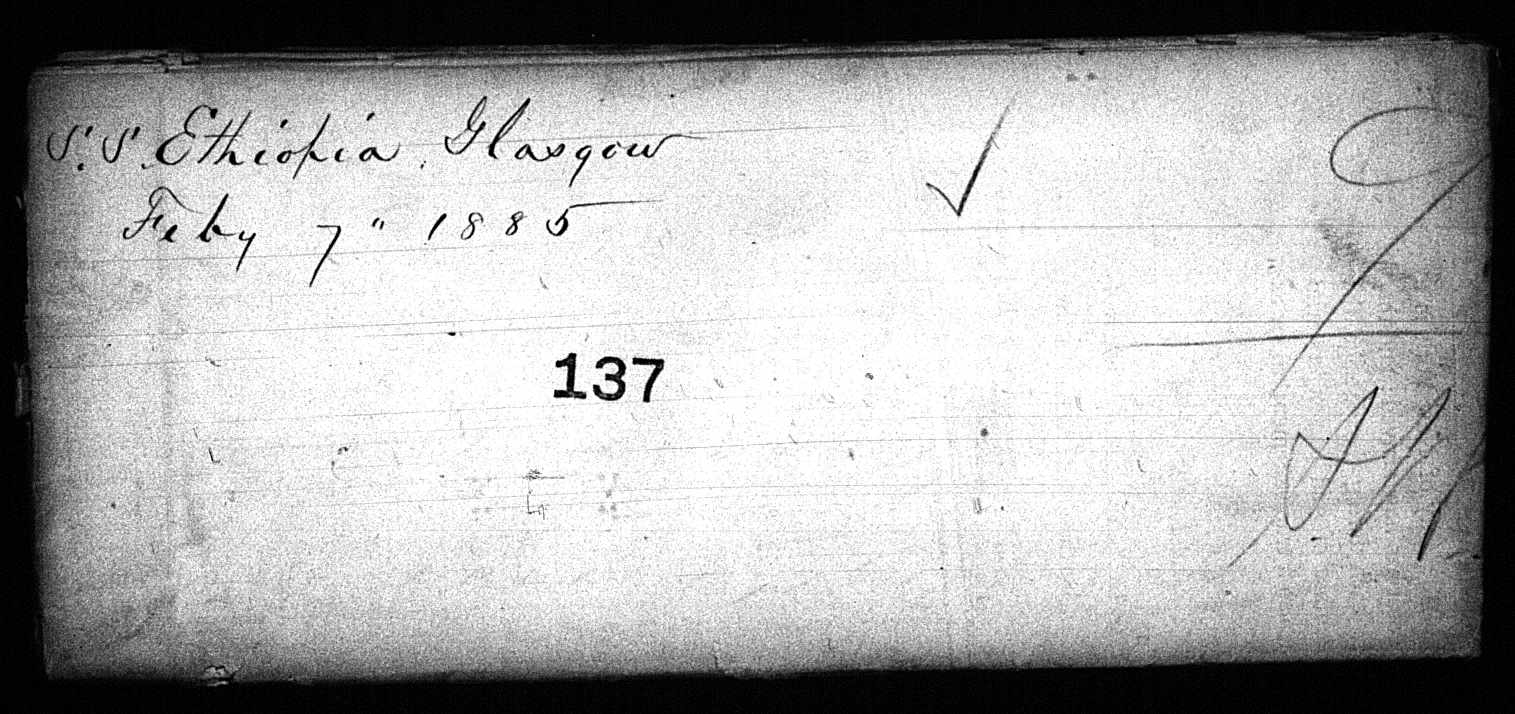 S.S. Ethiopia. Glasgow
Feby 7" 1885
✓
9
137